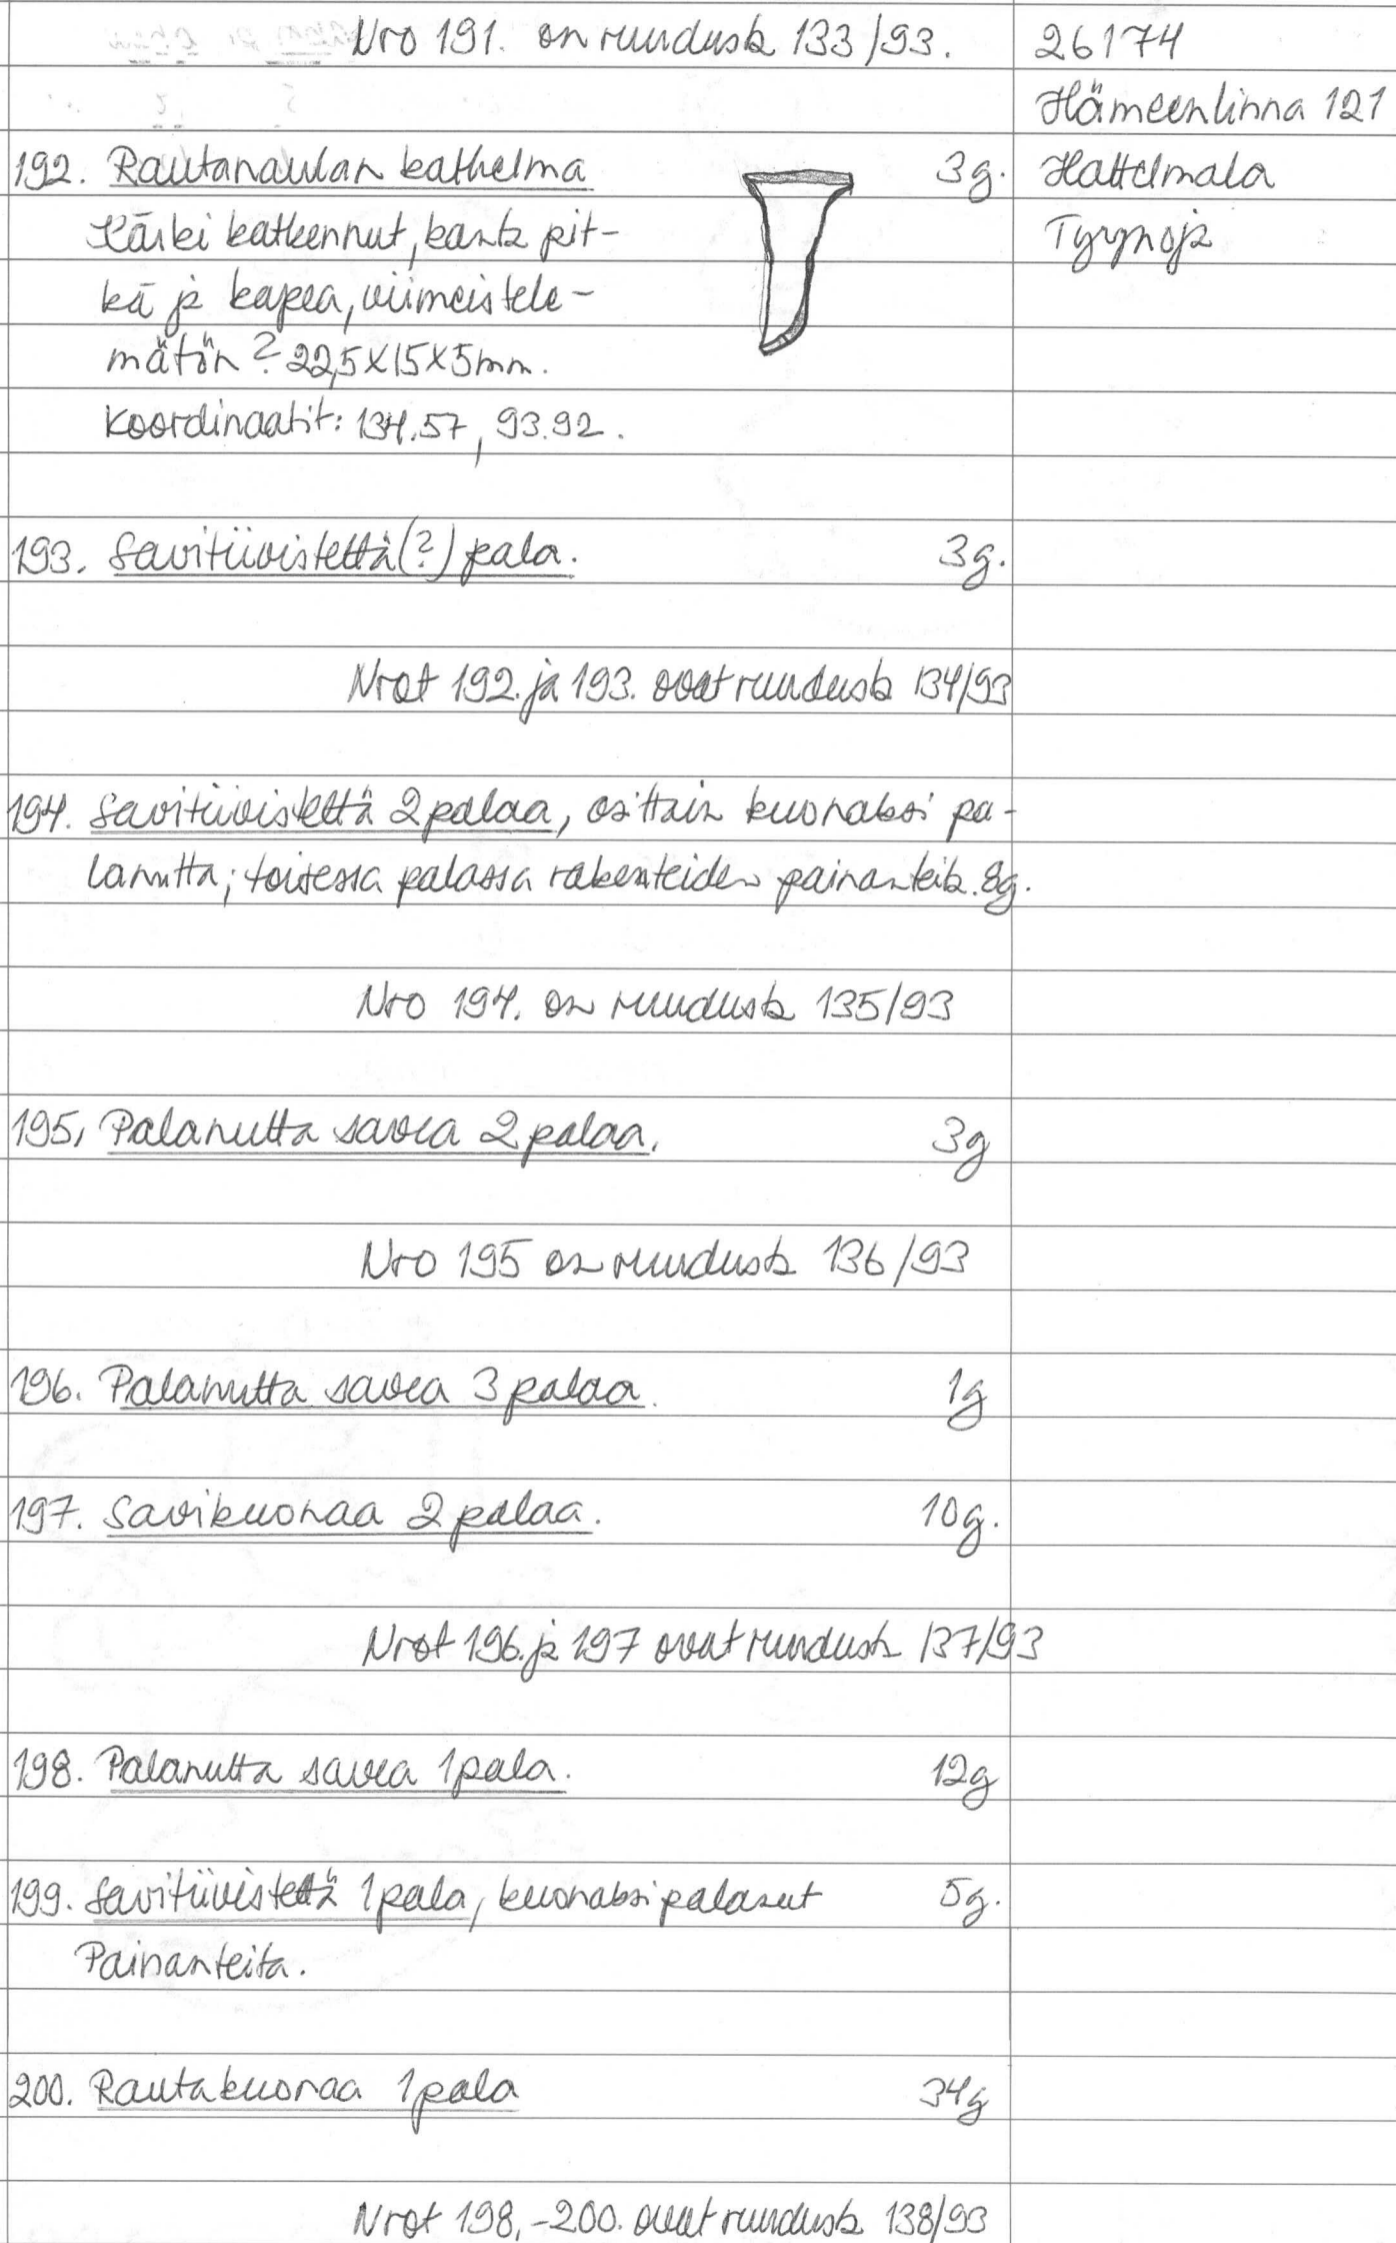 Nro 191. on ruudusta 133/93.
26174
Hämeenlinna 121
192. Rautanaulan katkelma 3g.
Hattelmala
Kärki katkennut, kanta pit-
Tyrynoja
kä ja kapea, viimeistele-
mätön? 22,5x15x5mm.
Koordinaatit: 134.57, 93.92.
193. Savitiivistettä(?) pala. 3g.
Nrot 192. ja 193. ovat ruudusta 134/93
194. Savitiivistettä 2 palaa, osittain kuonaksi pa-
lanutta; toisessa palassa rakenteiden painanteita. 8g.
Nro 194. on ruudusta 135/93
195. Palanutta savea 2 palaa. 3g
Nro 195 on ruudusta 136/93
196. Palanutta savea 3 palaa. 1g
197. Savikuonaa 2 palaa. 10g.
Nrot 196. ja 197 ovat ruudusta 137/93
198. Palanutta savea 1 pala. 12g
199. Savitiivistettä 1 pala, kuonaksi palanut 5g.
Painanteita.
200. Rautakuonaa 1 pala 34g
Nrot 198.-200. ovat ruudusta 138/93